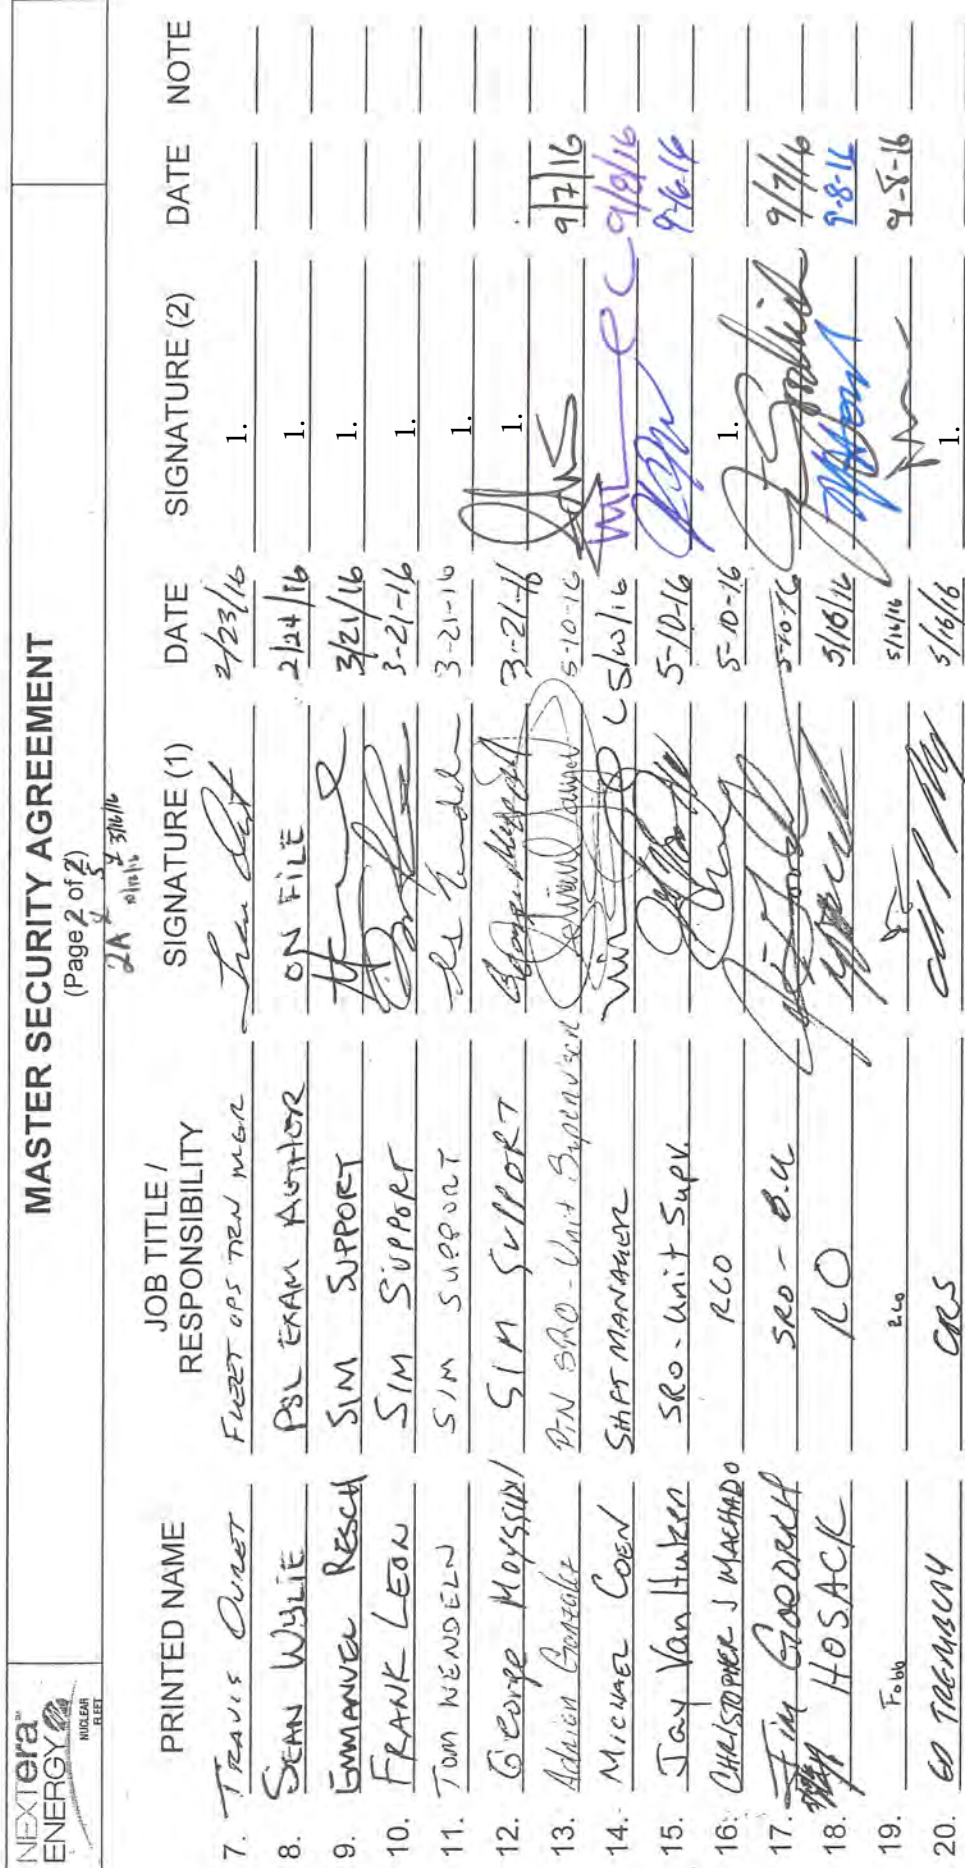 NEXTera™
ENERGY
NUCLEAR
FLEET
MASTER SECURITY AGREEMENT
(Page 2 of 2)
2A 3/16/16
PRINTED NAME JOB TITLE / RESPONSIBILITY SIGNATURE (1) DATE SIGNATURE (2) DATE NOTE
7. TRAVIS OURET FLEET OPS TRN MGR 2/23/16 1.
8. SEAN WYLIE PSL EXAM AUTHOR ON FILE 2/24/16 1.
9. EMMANUEL RESCH SIM SUPPORT 3/21/16 1.
10. FRANK LEON SIM SUPPORT 3-21-16 1.
11. TOM NENDELN SIM SUPPORT 3-21-16 1.
12. George SIM SUPPORT 3-21-16 1.
13. Adrian Gonzalez SRO - Unit Supervisor 5-10-16 9/7/16
14. MICHAEL COEN SHIFT MANAGER 5/10/16 9/8/16
15. Jay Van Hutzen SRO - Unit Supv. 5-10-16 9-6-16
16. CHRISTOPHER J MACHADO RCO 5-10-16 1.
17. Jim SRO - B.U 5-10-16 9/7/16
18. HOSACK RO 5/10/16 9-8-16
19. Fobb 5/16/16 9-8-16
20. ED TREMBLAY 5/16/16 1.